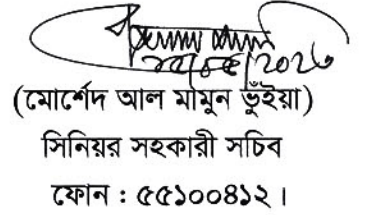 (মোর্শেদ আল মামুন ভূঁইয়া)
সিনিয়র সহকারী সচিব
ফোন : ৫৫১০০৪১২।